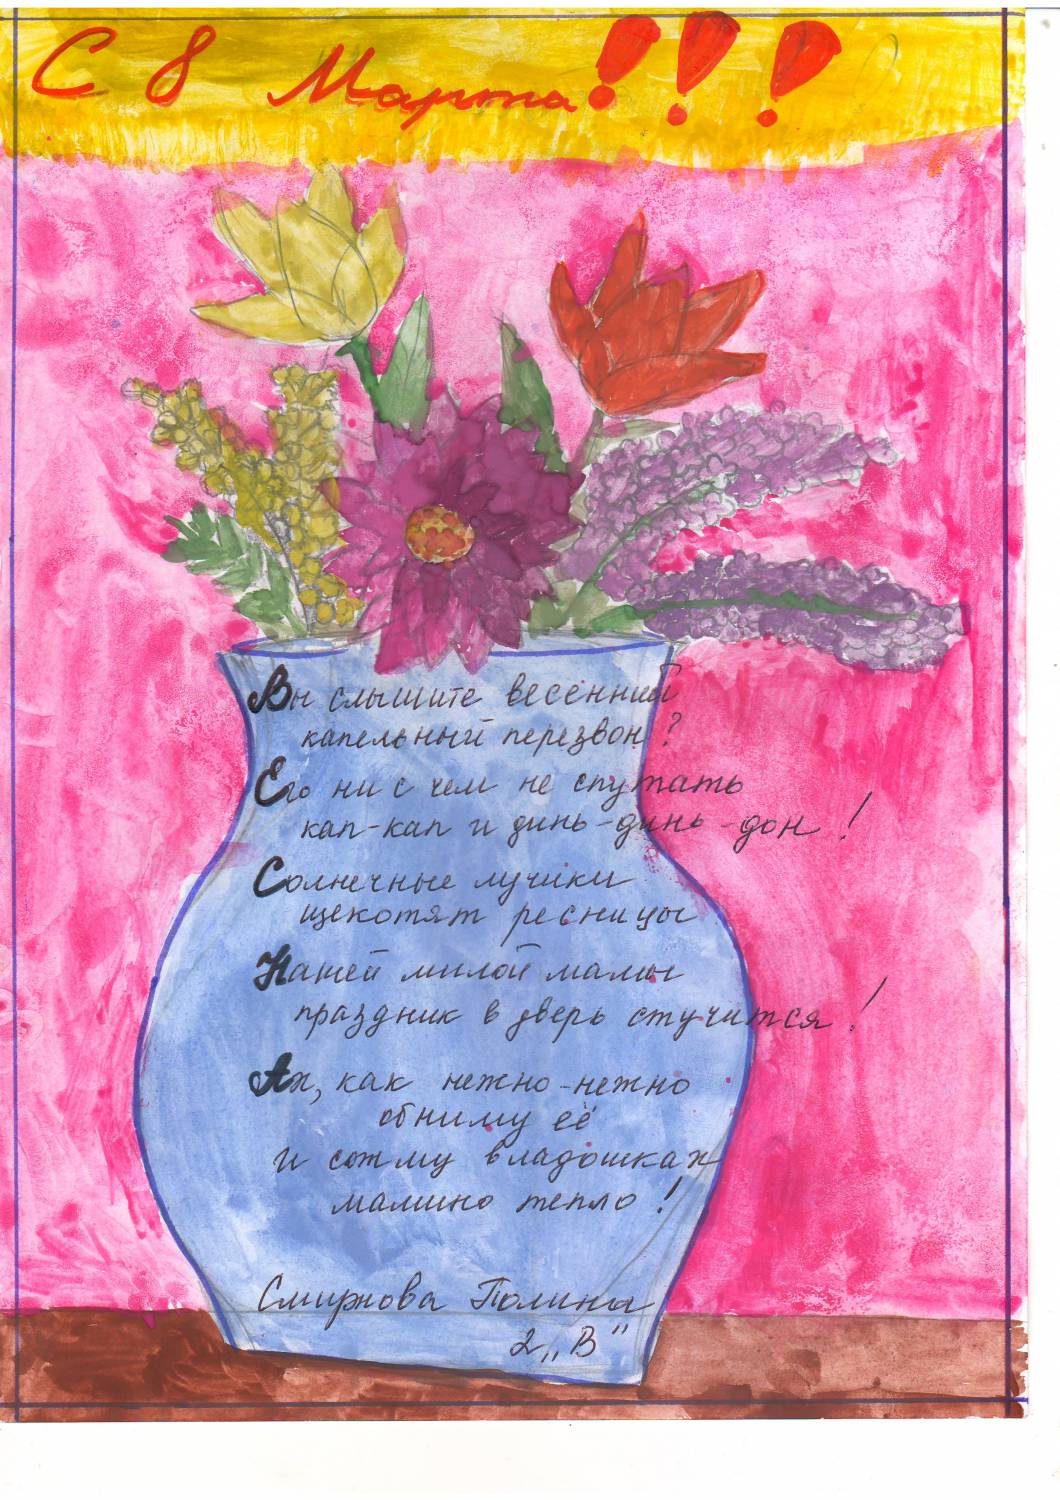 С 8 Марта!!!
Вы слышите весенний
капельный перезвон?
Его ни с чем не спутать
кап-кап и динь-динь-дон!
Солнечные лучики
щекотят ресницы
Нашей милой мамы
праздник в дверь стучится!
Ах, как нежно-нежно
обниму её
и сожму в ладошках
мамино тепло!
Смирнова Полина
2 „В"